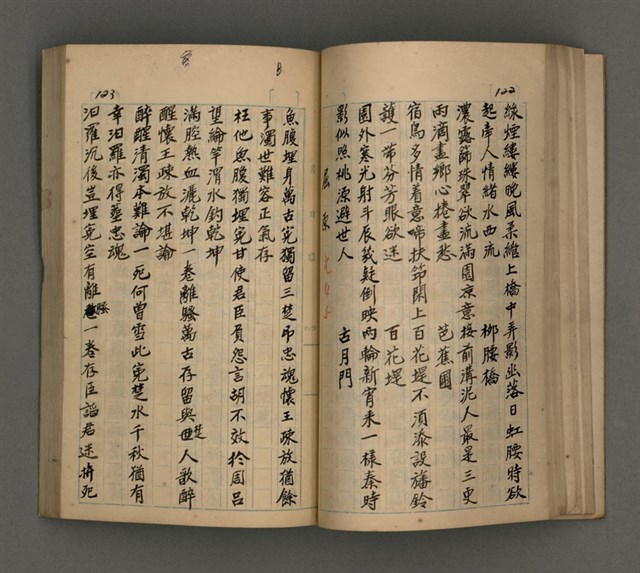 122
綠煙縷縷晚風柔綰上橋中弄影幽落日虹腰時欲
起帝人情緒水西流　　柳腰橋
濃露篩珠翠欲流滿園涼意接前溝泥人最是三更
雨滴盡鄉心捲盡愁　　芭蕉園
宿鳥多情着意啼扶筇閒上百花堤不須添設旛鈴
護一帶芬芳眼欲迷　　百花堤
園外寒光射斗辰幾疑倒映兩輪新宵來一樣秦時
影似照桃源避世人　　古月門
屈原
123
魚腹埋身萬古冤獨留三楚弔忠魂懷王疎放猶餘
事濁世難容正氣存
枉他魚腹獨埋冤甘使君臣負怨言胡不效於周呂
望綸竿渭水釣乾坤
滿腔熱血灑乾坤一卷離騷萬古存留與楚人歌醉
醒懷王疎放不堪論
醉醒清濁本難論一死何曾雪此冤楚水千秋猶有
幸汨羅亦得塟忠魂
汨羅沉後豈埋冤空有離騷一卷存臣諂君迷拚死